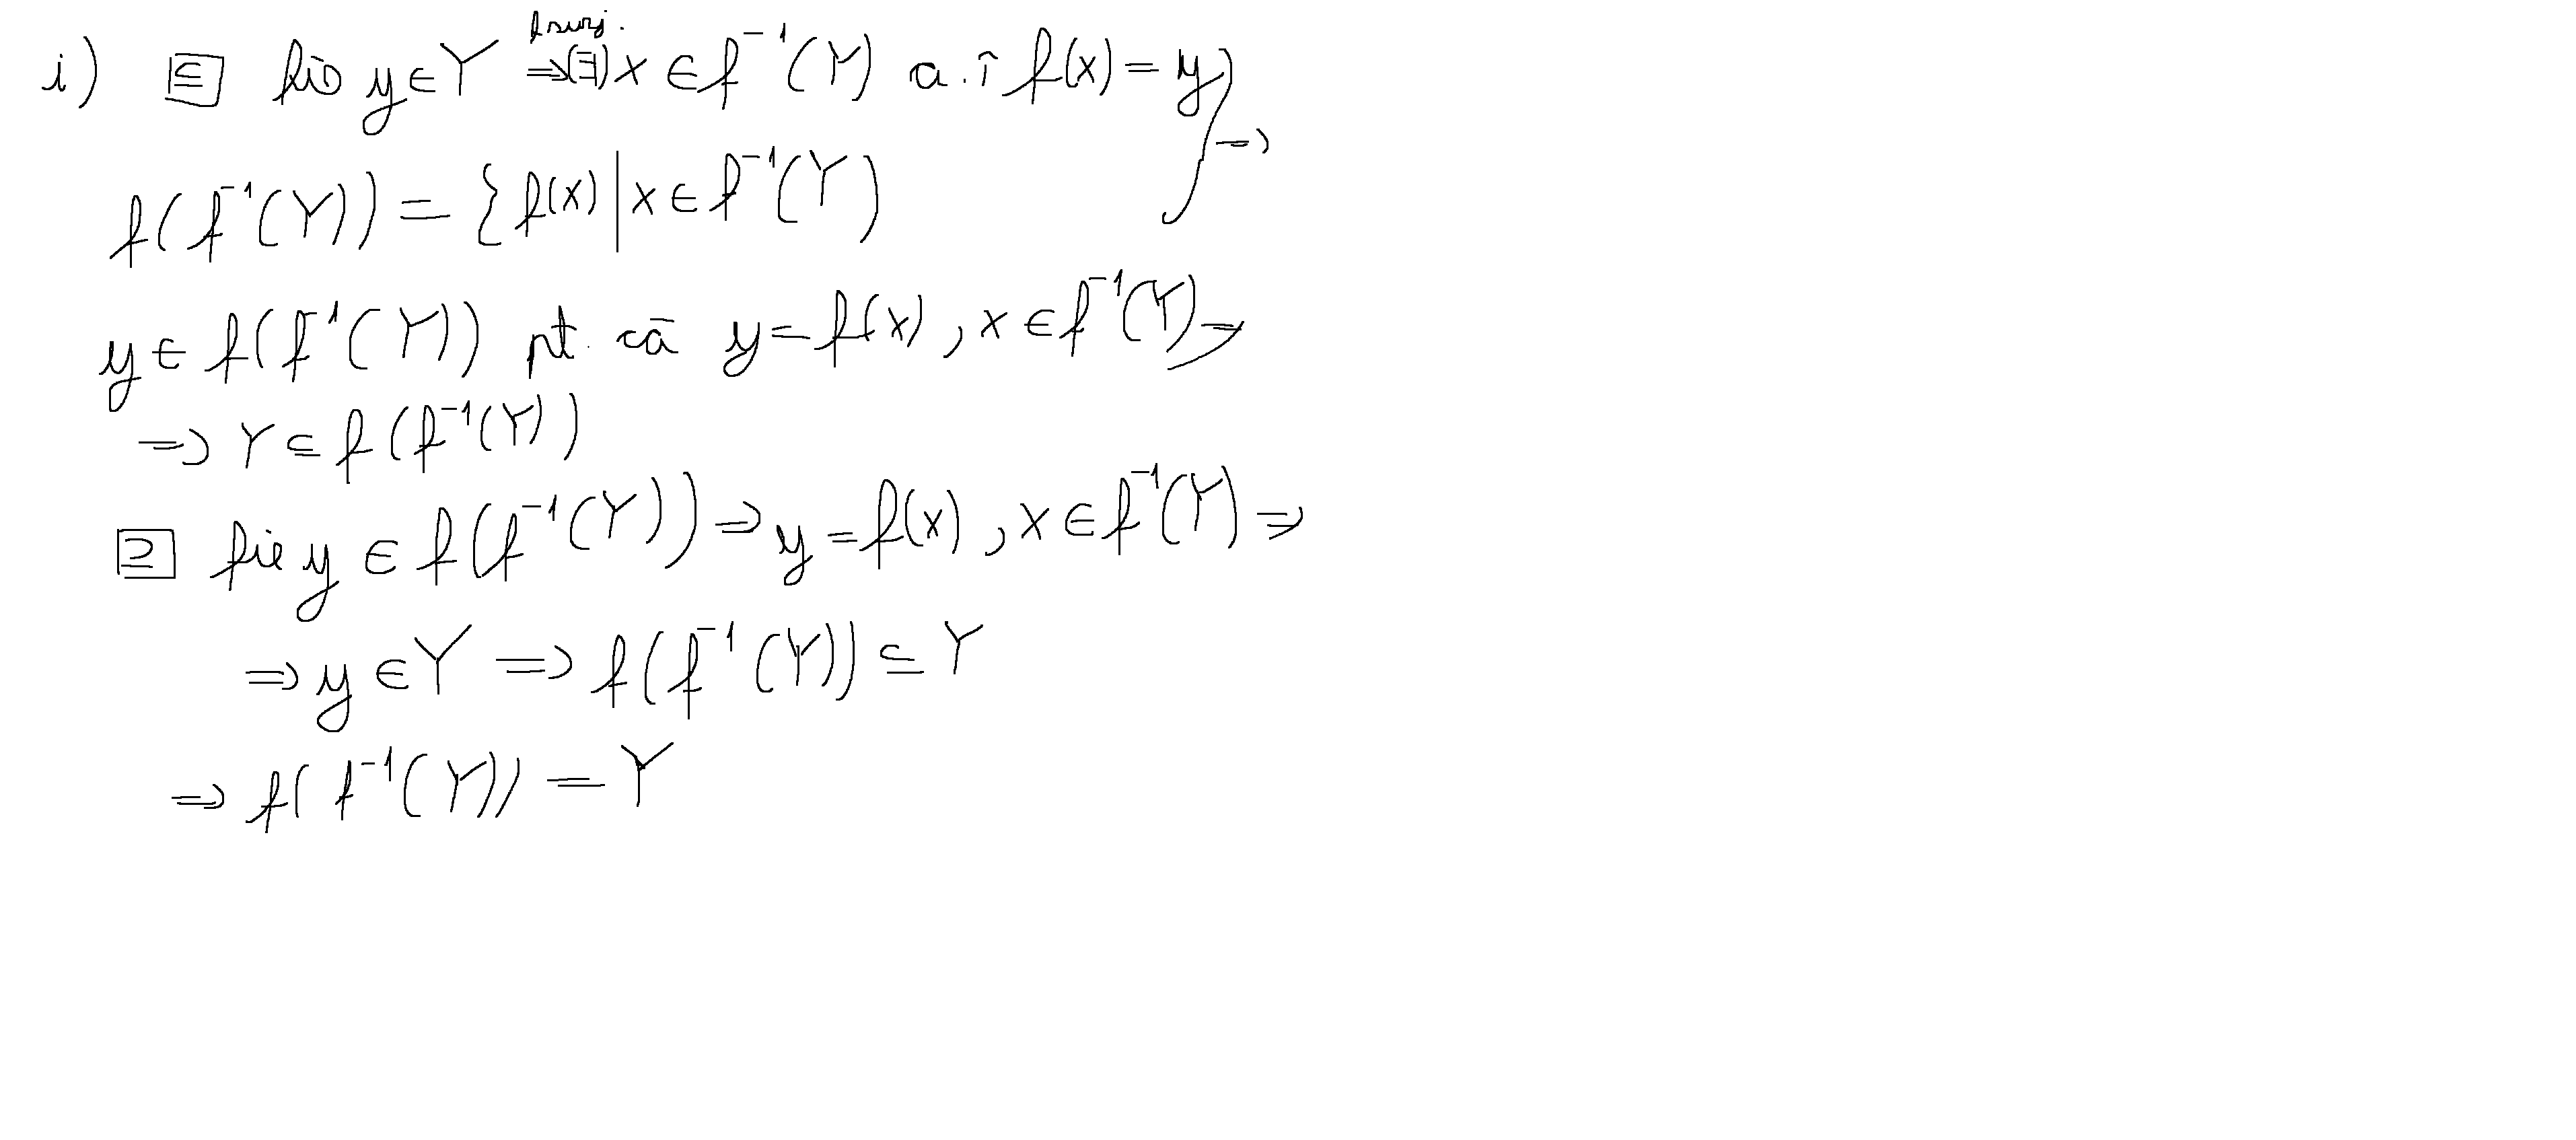 i) ⊆ fie y ∈ Y ⇒ f surj. (∃) x ∈ f⁻¹(Y) a.î f(x) = y
f(f⁻¹(Y)) = {f(x) | x ∈ f⁻¹(Y) } ⇒
y ∈ f(f⁻¹(Y)) pt. că y = f(x), x ∈ f⁻¹(Y) ⇒
⇒ Y ⊆ f(f⁻¹(Y))
⊇ fie y ∈ f(f⁻¹(Y)) ⇒ y = f(x), x ∈ f⁻¹(Y) ⇒
⇒ y ∈ Y ⇒ f(f⁻¹(Y)) ⊆ Y
⇒ f(f⁻¹(Y)) = Y